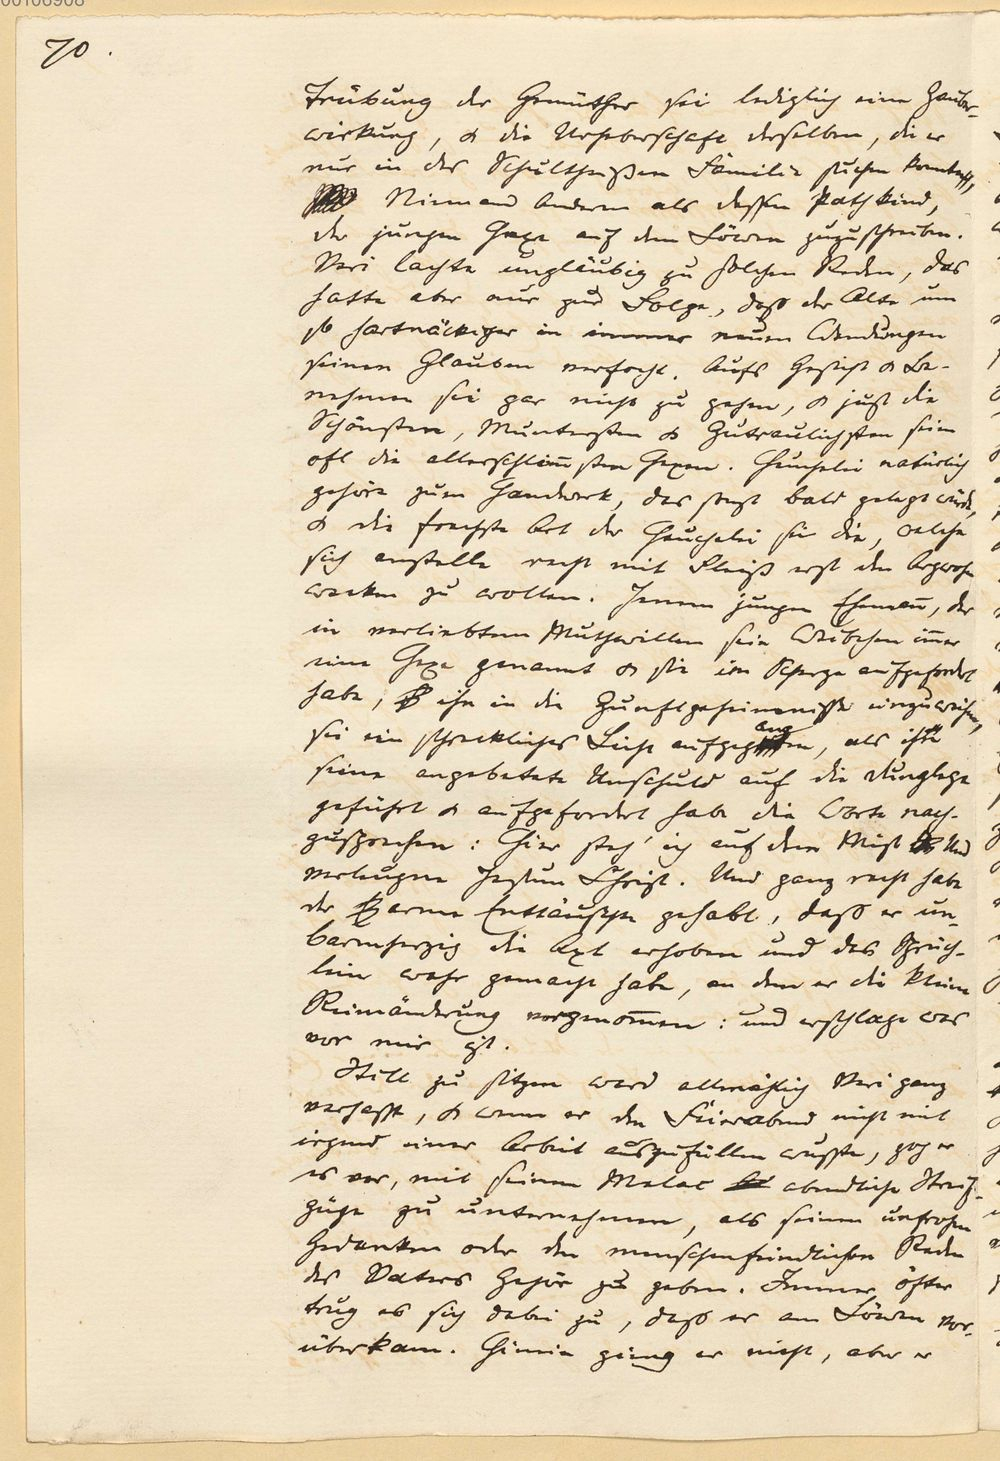 00106908
70.
Trübung der Gemüther sei lediglich eine Zauber-
wirkung, & die Urheberschaft derselben, die er
nur in der Schultheßen Familie suchen konnte,
Niemand Anderm als dessen Pathkind,
der jungen Hexe auf dem Löwen zuzuschreiben.
Veri lachte ungläubig zu solchen Reden, das
hatte aber nur zur Folge, daß der Alte um
so hartnäckiger in immer neuen Wendungen
seinen Glauben verfocht. Aufs Gesicht & Be-
nehmen sei gar nicht zu gehen, & just die
Schönsten, Muntersten & Zutraulichsten seien
oft die allerschlim̅sten Hexen. Heuchelei natürlich
gehöre zum Handwerk, das sonst bald gelegt würde,
& die frechste Art der Heuchelei sei die, welche
sich anstelle recht mit Fleiß erst den Argwohn
wecken zu wollen. Jenem jungen Eheman̅, der
in verliebtem Muthwillen sein Weibchen im̅er
eine Hexe genannt & sie im Scherze aufgefordert
habe, ihn in die Zunftgeheimnisse einzuweihen,
sei ein schreckliches Licht aufgegangen, als ihn
seine angebetete Unschuld auf die Dunglege
geführt & aufgefordert habe die Worte nach-
zusprechen: Hier steh' ich auf dem Mist Und
verleugne Jesum Christ. Und ganz recht habe
der arme Enttäuschte gehabt, daß er un-
barmherzig die Axt erhoben und das Sprüch-
lein wahr gemacht habe, an dem er die kleine
Reimänderung vorgenom̅en: und erschlage was
vor mir ist.
Still zu sitzen ward allmählich Veri ganz
verhaßt, & wenn er den Feierabend nicht mit
irgend einer Arbeit auszufüllen wußte, zog er
es vor, mit seinem Melac abendliche Streif-
züge zu unternehmen, als seinen unfrohen
Gedanken oder den menschenfeindlichen Reden
des Vaters Gehör zu geben. Immer öfter
trug es sich dabei zu, daß er am Löwen vor-
überkam. Hinein gieng er nicht, aber er